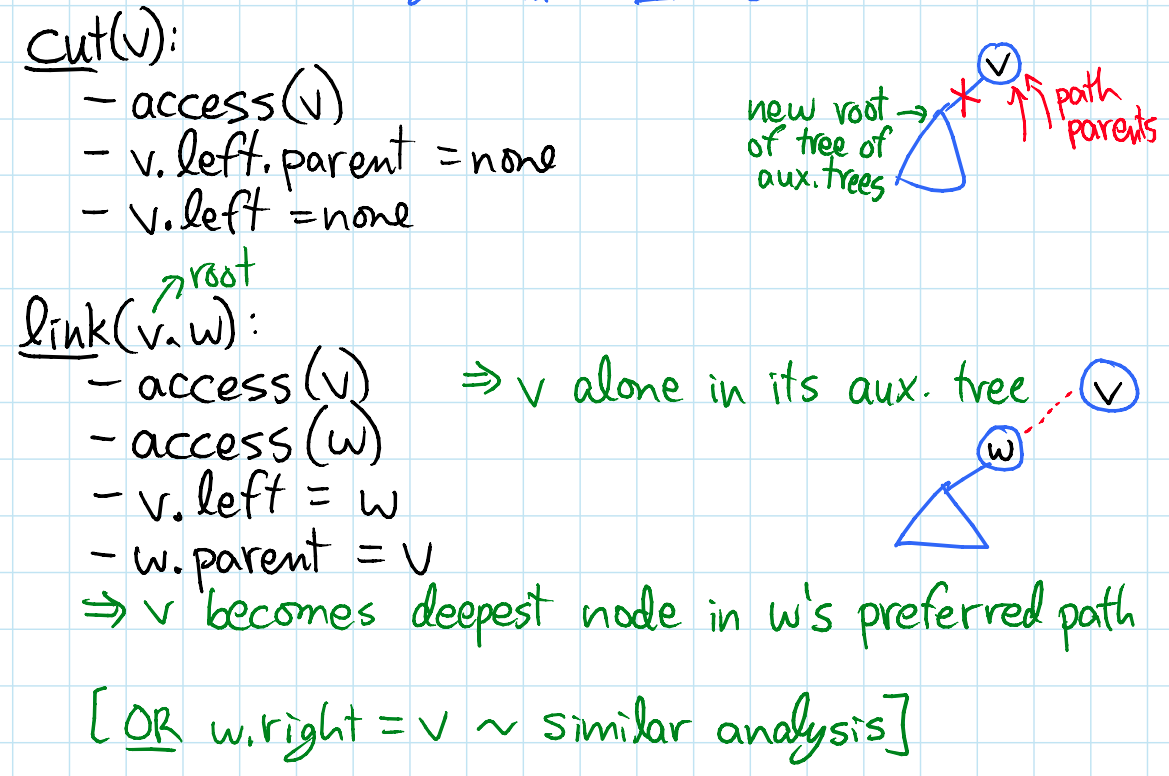 cut(v):
- access(v)
- v.left.parent = none
- v.left = none
v
new root →
of tree of
aux. trees
path
parents
root
link(v, w):
- access(v) ⇒ v alone in its aux. tree
v
- access(w)
w
- v.left = w
- w.parent = v
⇒ v becomes deepest node in w's preferred path
[OR w.right = v ~ similar analysis]